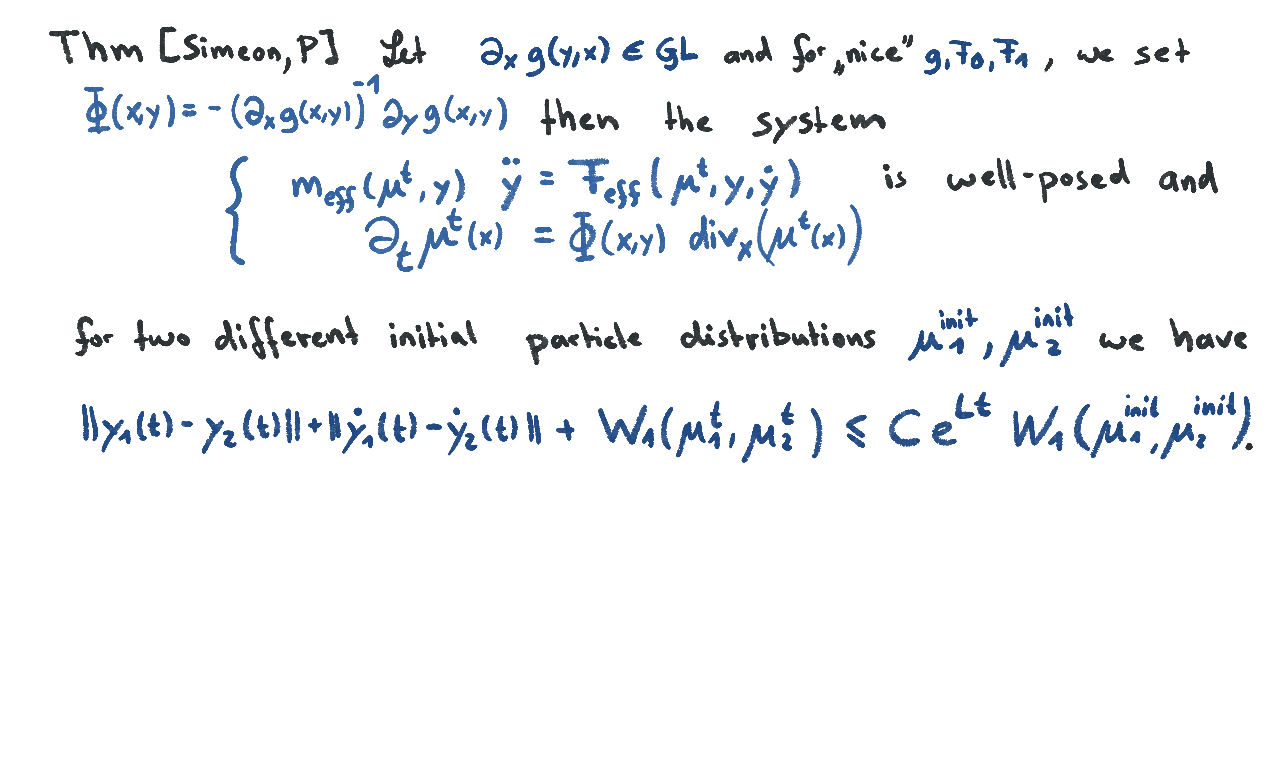 Thm [Simeon, P] Let ∂ₓ g(y,x) ∈ GL and for „nice" g, F₀, F₁, we set
Φ(x,y) = - (∂ₓg(x,y))⁻¹ ∂ᵧg(x,y) then the system
{ m_eff(μᵗ, y) ÿ = F_eff(μᵗ, y, ẏ) is well-posed and
∂ₜ μᵗ(x) = Φ(x,y) divₓ(μᵗ(x))
for two different initial particle distributions μ₁^init, μ₂^init we have
||y₁(t) - y₂(t)|| + ||ẏ₁(t) - ẏ₂(t)|| + W₁(μ₁ᵗ, μ₂ᵗ) ⩽ C e^{Lt} W₁(μ₁^init, μ₂^init).